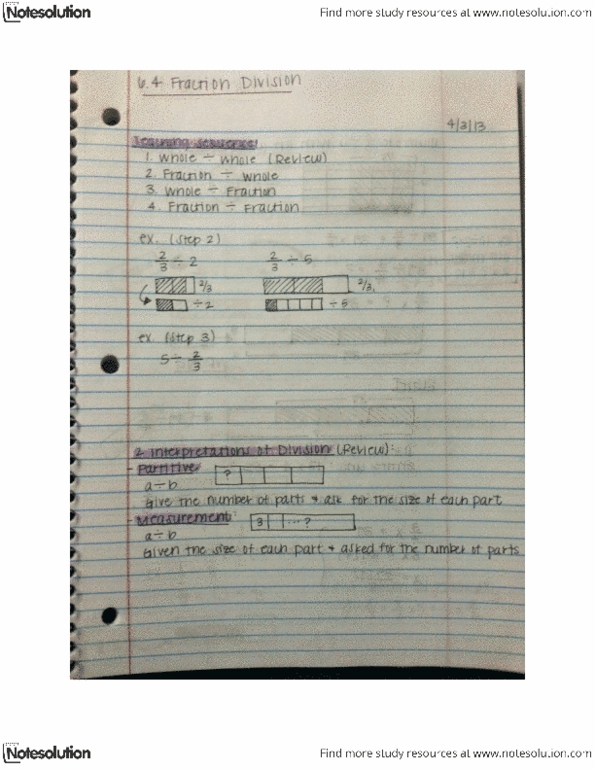 Notesolution
Find more study resources at www.notesolution.com
6.4 Fraction Division
4/3/13
Teaching Sequence:
1. Whole ÷ Whole (Review)
2. Fraction ÷ Whole
3. Whole ÷ Fraction
4. Fraction ÷ Fraction
ex. (Step 2)
2/3 ÷ 2    2/3 ÷ 5
2/3    2/3
÷ 2    ÷ 5
ex. (Step 3)
5 ÷ 2/3
2 Interpretations of Division (Review):
- Partitive ?
a ÷ b
Give the number of parts + ask for the size of each part
- Measurement: 3 ... ?
a ÷ b
Given the size of each part + asked for the number of parts
Notesolution
Find more study resources at www.notesolution.com